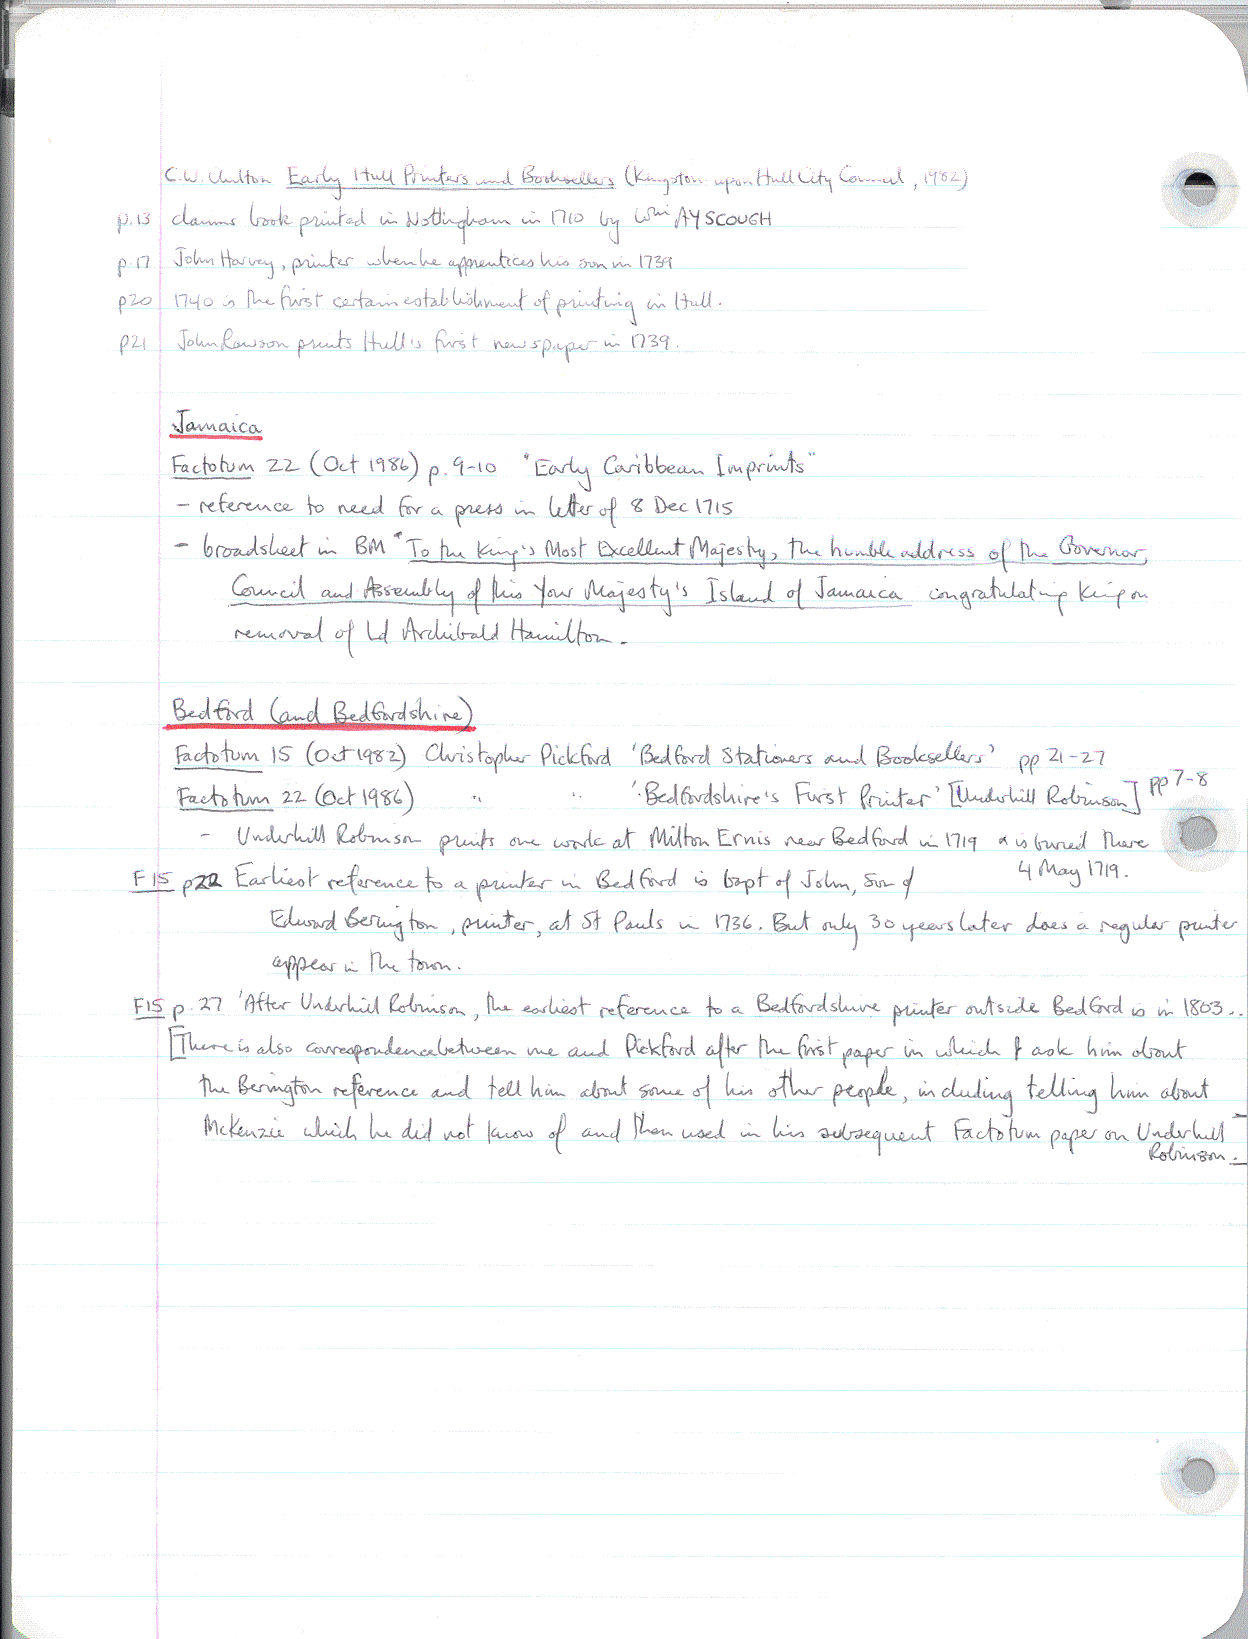 C.W. Chilton Early Hull Printers and Booksellers (Kingston upon Hull City Council, 1982)
p.13 claims book printed in Nottingham in 1710 by Wm AYSCOUGH
p.17 John Harvey, printer when he apprentices his son in 1739
p20 1740 is the first certain establishment of printing in Hull.
p21 John Rawson prints Hull's first newspaper in 1739.
Jamaica
Factotum 22 (Oct 1986) p.9-10 "Early Caribbean Imprints"
- reference to need for a press in letter of 8 Dec 1715
- broadsheet in BM "To the King's Most Excellent Majesty, the humble address of the Governor,
Council and Assembly of this Your Majesty's Island of Jamaica congratulating King on
removal of Ld Archibald Hamilton.
Bedford (and Bedfordshire)
Factotum 15 (Oct 1982) Christopher Pickford 'Bedford Stationers and Booksellers' pp 21-27
Factotum 22 (Oct 1986) " " 'Bedfordshire's First Printer' [Underhill Robinson] pp 7-8
- Underhill Robinson prints one work at Milton Ernis near Bedford in 1719 & is buried there
4 May 1719.
F15 p22 Earliest reference to a printer in Bedford is bapt of John, son of
Edward Berington, printer, at St Pauls in 1736. But only 30 years later does a regular printer
appear in the town.
F15 p.27 'After Underhill Robinson, the earliest reference to a Bedfordshire printer outside Bedford is in 1803..
[There is also correspondence between me and Pickford after the first paper in which I ask him about
the Berington reference and tell him about some of his other people, including telling him about
McKenzie which he did not know of and then used in his subsequent Factotum paper on Underhill
Robinson.